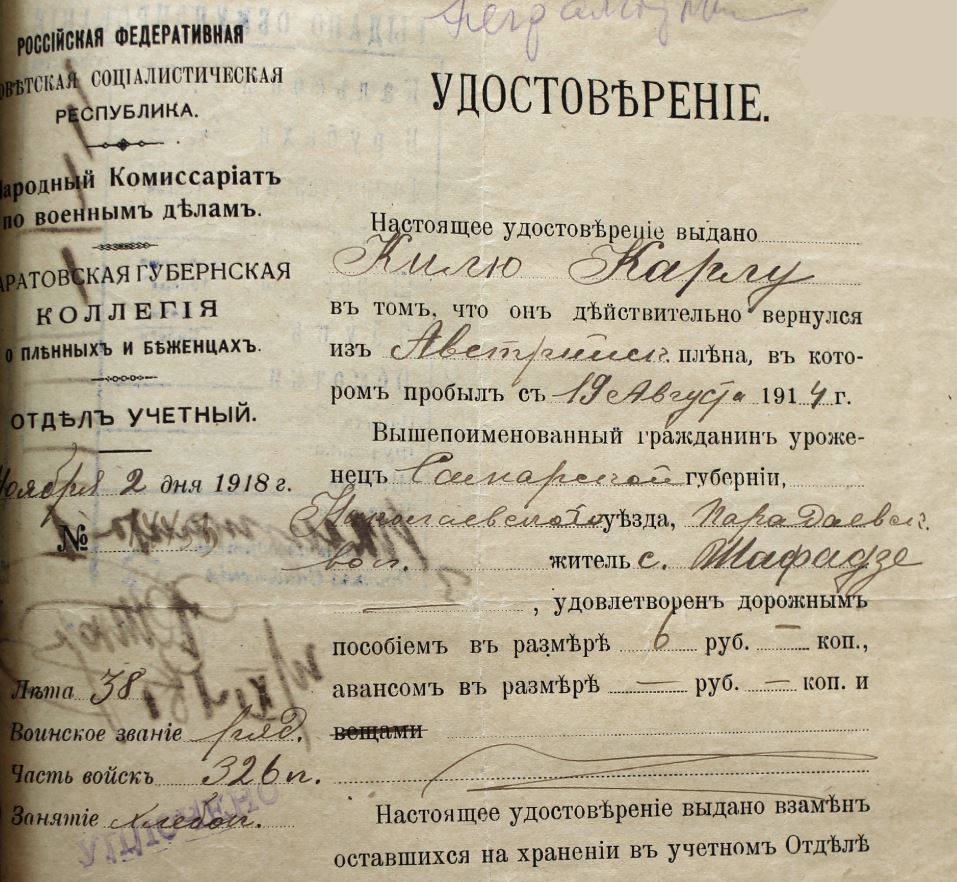 РОССІЙСКАЯ ФЕДЕРАТИВНАЯ
ОВѢТСКАЯ СОЦІАЛИСТИЧЕСКАЯ
РЕСПУБЛИКА.
Народный Комиссаріатъ
по военнымъ дѣламъ.
АРАТОВСКАЯ ГУБЕРНСКАЯ
КОЛЛЕГІЯ
о ПЛѢННЫХЪ И БѢЖЕНЦАХЪ.
ОТДѢЛЪ УЧЕТНЫЙ.
Ноября 2 дня 1918 г.
№
Лѣта 38
Воинское званіе ряд.
Часть войскъ 326 п.
Занятіе хлебоп.
УПЛОЧЕНО
УДОСТОВѢРЕНІЕ.
Настоящее удостовѣреніе выдано
Килю Карлу
въ томъ, что онъ дѣйствительно вернулся
изъ Австрійск. плѣна, въ кото-
ромъ пробылъ съ 19 Августа 1914 г.
Вышепоименованный гражданинъ уроже-
нецъ Самарской губерніи,
Николаевского уѣзда,
вол. житель с.
, удовлетворенъ дорожнымъ
пособіемъ въ размѣрѣ 6 руб. — коп.,
авансомъ въ размѣрѣ — руб. — коп. и
вещами
Настоящее удостовѣреніе выдано взамѣнъ
оставшихся на храненіи въ учетномъ Отдѣлѣ